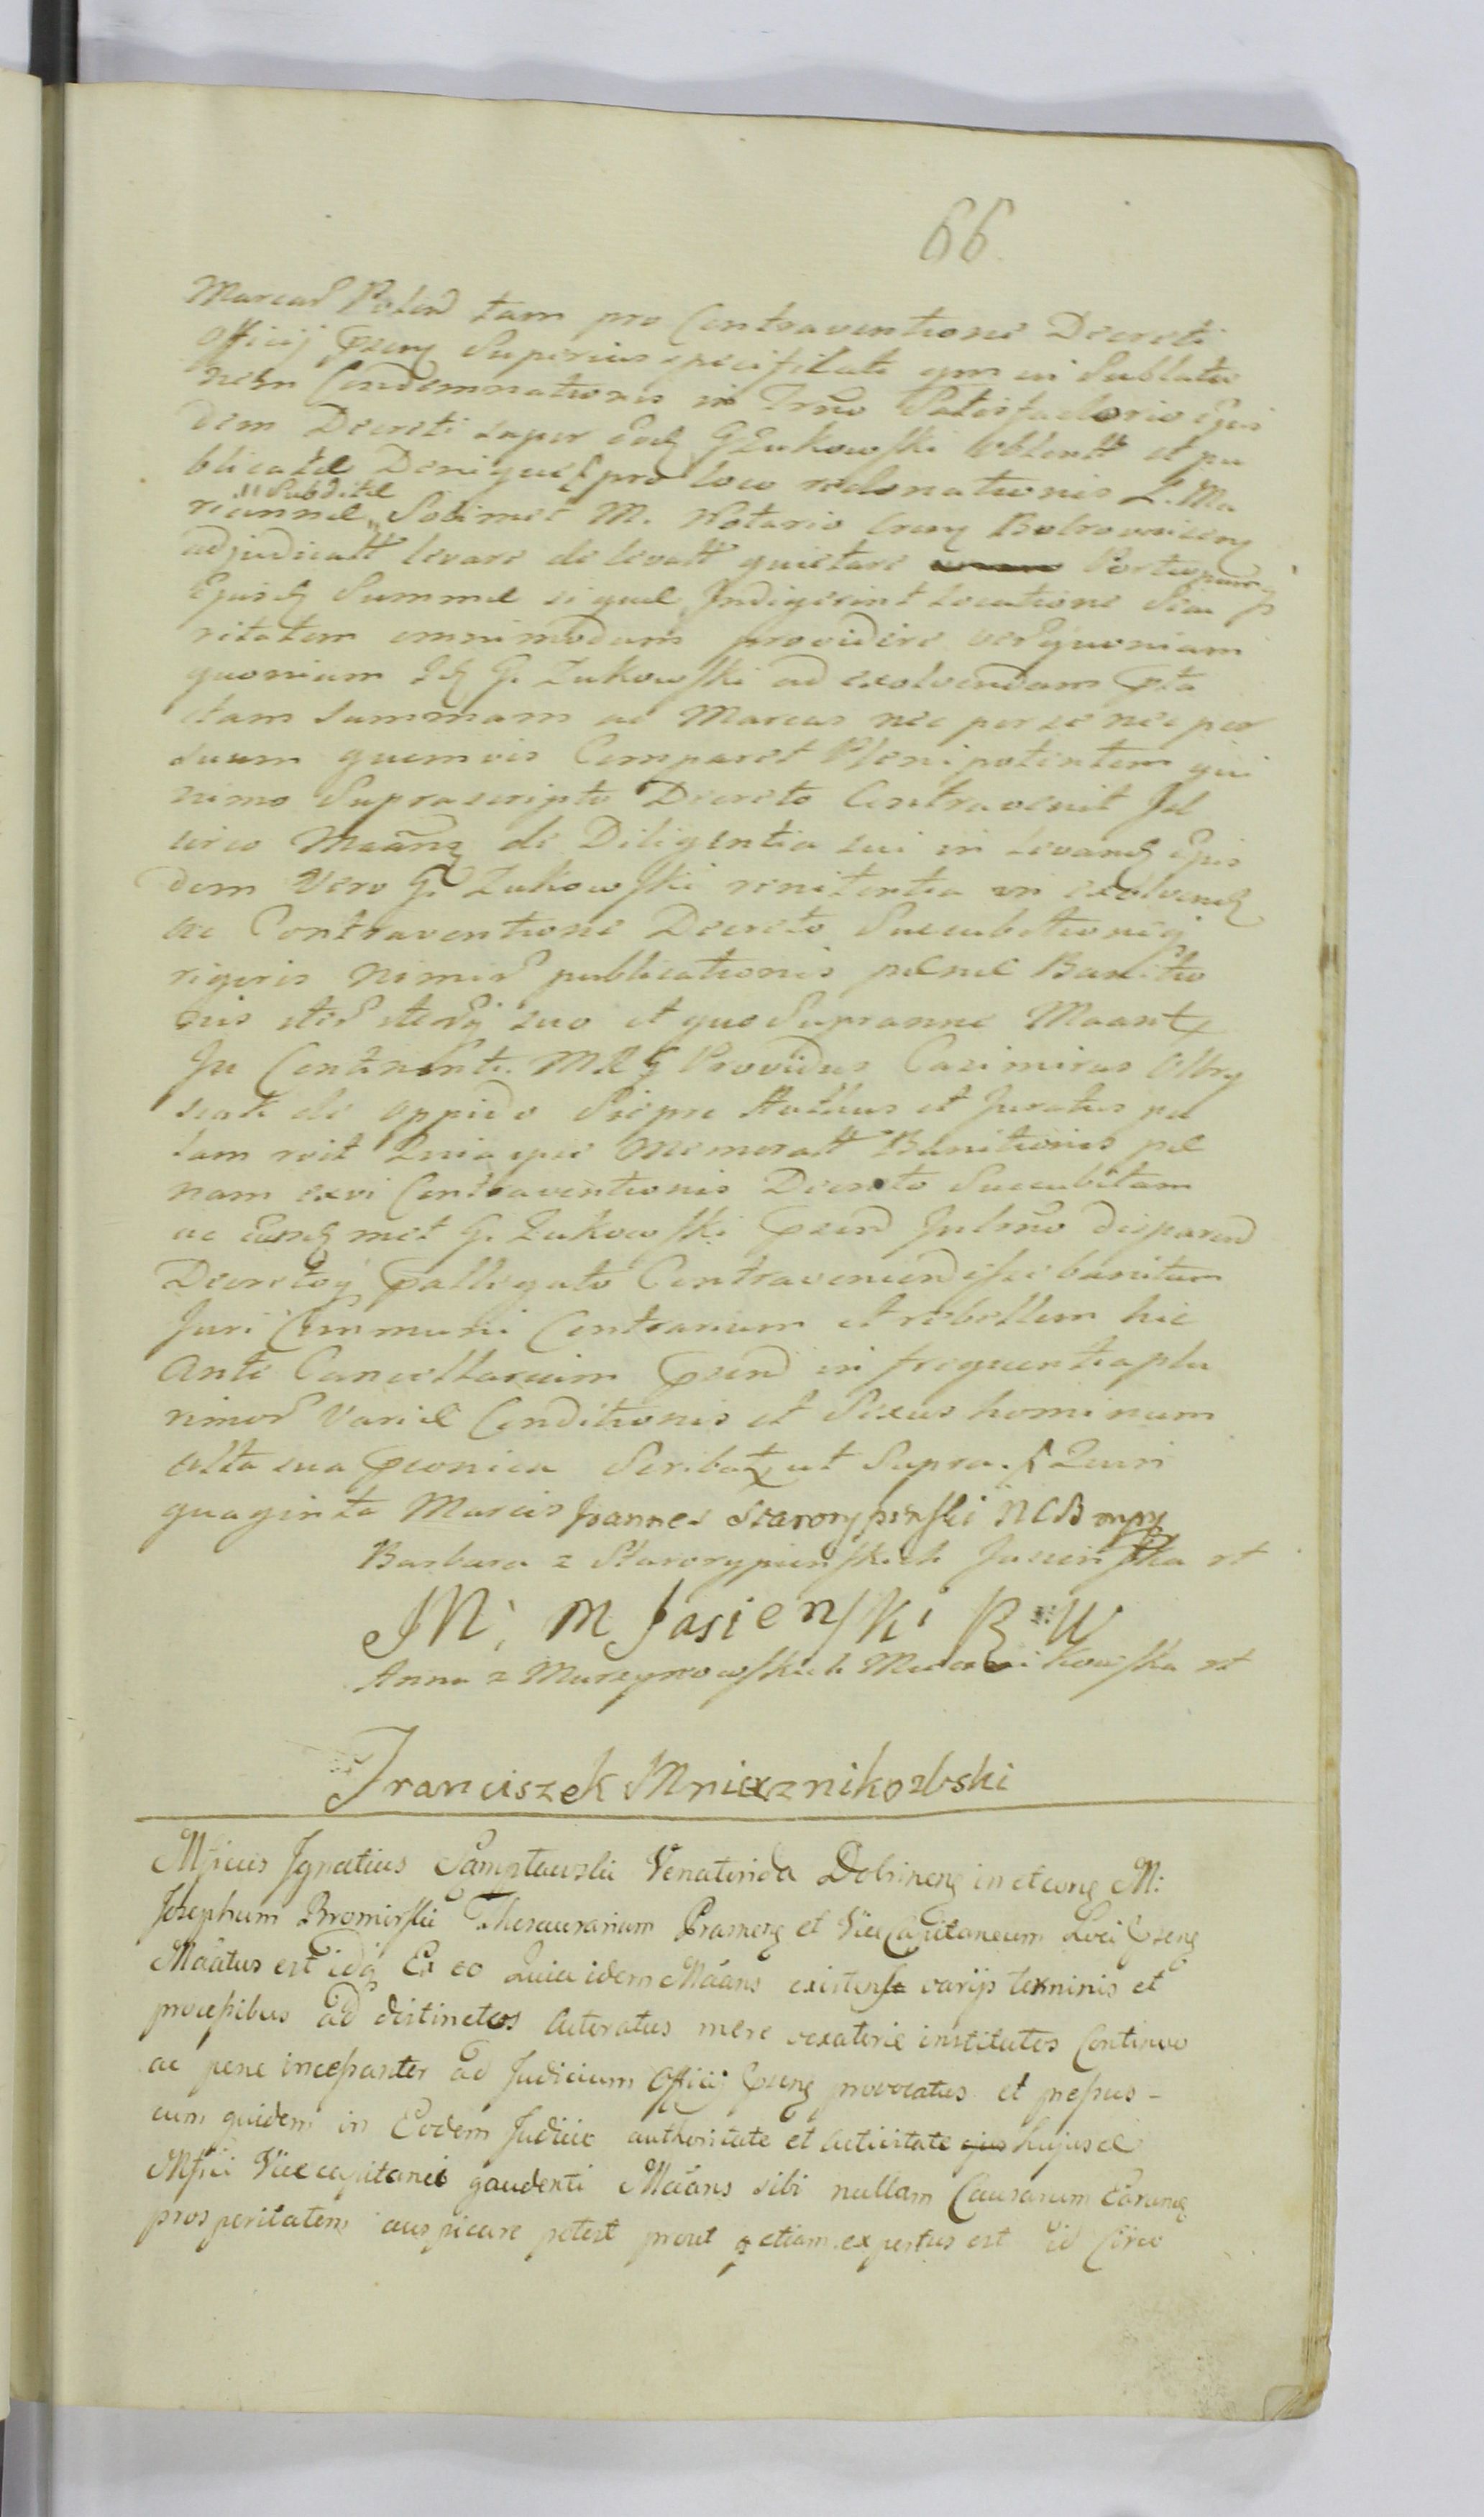 66.
Marcar Polon tam pro Contraventione Decreti
Officij Pseng Superius specificati qm in Sublatio
nem Condemnationis in Trno Satisfactorio Ejus
dem Decreti super Eodz G Zukowski obtent et pu
blicatæ Denique pro loco redonationis L. Ma
riannæ Subditæ Sibimet M. Notario Cren
adjudicatt levare de levatt quietare
Ejusdz Summæ si quæ Indigerint locatione Secu
ritatem omnimodam providere verq quoniam
quonium Idz G. Zukowski ad exolvendam Pta
ctam Summam ac Marcas nec per se nec per
suum quemvis Comparet Plenipotentem qui
nimo Suprascripto Decreto Contravenit Id
circo Maans de Diligentia sui in Levandz Ejus
dem Vero G. Zukowski renitentia in exolvendz
ac Contraventione Decreto Succubitionéq
rigoris nimir publicationis pænæ Banitio
nis suo et quo Supranne Maantz
In Continenti. M R G Providus Casimirus
de oppido Sieprc Authus et Juratus pa
lam roit Quia ipse Memoratt Banitionis pæ
nam exvi Contraventionis Decreto Succubitam
ac Eundz met G. Zukowski Psend Jultrno disparend
Decretoq Pallegato Contraveniend esse banitum
Juri Communi Contrarium et rebellem hic
Ante Cancellariam Psend in frequentia plu
rimor Variæ Conditionis et Sexus hominum
Alta sua Pconica Scribatz ut Supra. Quin
quaginta Marcis Joannes Starorypinski NCB mpp
Barbara z Starorypinskich Jasinska rt
JN; M Jasienski R W
Anna z Murzynowskich rt
Franciszek Mniecznikowski
Mficus Ignatius Venatorida Dobrineng in et cong M:
Josephum Bromirski Thesaurarium Prasneng et ViceCapitaneum Loci Pseng
Máatus est idq Ex eo Quia idem Máans existens varijs terminis et
processibus ad distinctos Acteratus mere vexatorie institutos Continuo
ac pene incessanter ad Judicium Officij Pseng provocatus et pressus -
cum quidem in Eodem Judicio authoritate et Activitate ejus hujusce
Mfici Vicecapitanei gaudenti Máans sibi nullam Causarum Earundz
prosperitatem auspicare potest prout etiam expertus est Id Circo